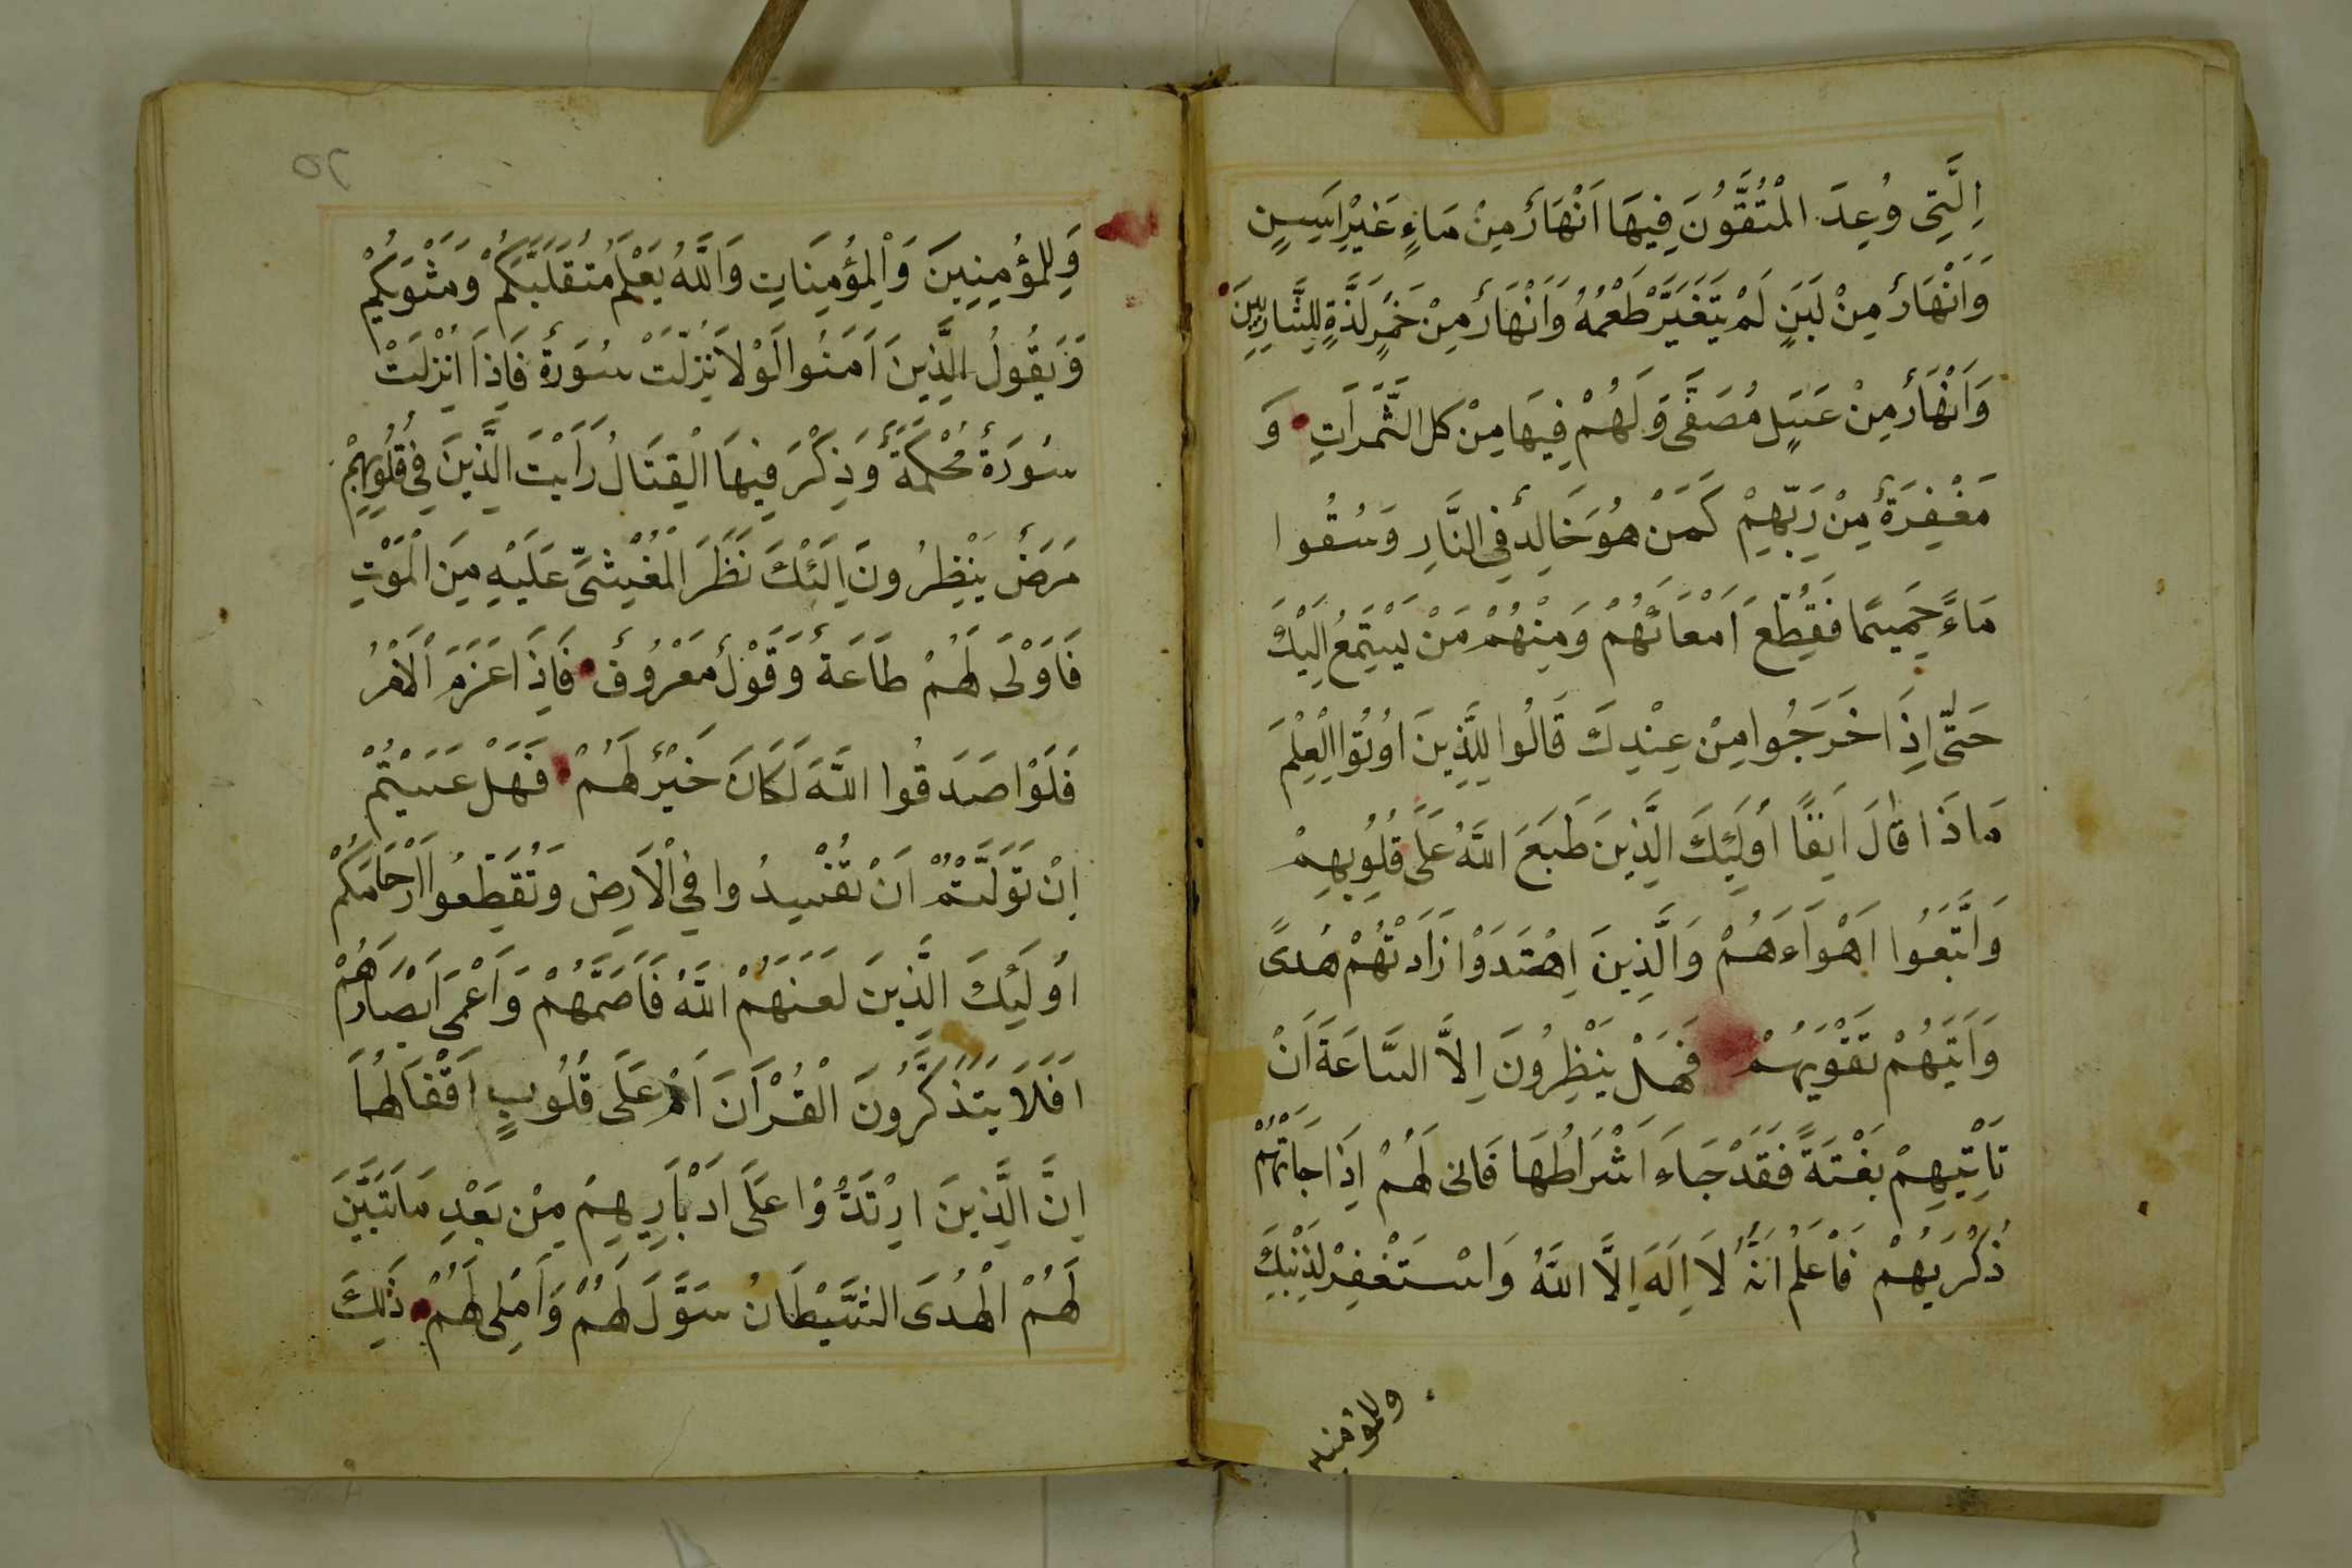 اِلَّتِی وُعِدَ الْمُتَّقُونَ فِيهَا اَنْهَارٌ مِنْ مَاءٍ غَيْرِ اَسِنٍ
وَاَنْهَارٌ مِنْ لَبَنٍ لَمْ يَتَغَيَّرْ طَعْمُهُ وَاَنْهَارٌ مِنْ خَمْرٍ لَذَّةٍ لِلشَّارِبِينَ
وَاَنْهَارٌ مِنْ عَسَلٍ مُصَفًّى وَلَهُمْ فِيهَا مِنْ كل الثَّمَرَاتِ وَ
مَغْفِرَةٌ مِنْ رَبِّهِمْ كَمَنْ هُوَ خَالِدٌ فِي النَّارِ وَسُقُوا
مَاءً حَمِيمًا فَقَطَّعَ اَمْعَائَهُمْ وَمِنْهُمْ مَنْ يَسْتَمِعُ اِلَيْكَ
حَتّٰى اِذَا خَرَجُوا مِنْ عِنْدِكَ قَالُوا لِلَّذِينَ اُوتُوا الْعِلْمَ
مَاذَا قَالَ اَنِفًا اُولَئِكَ الَّذِينَ طَبَعَ اللَّهُ عَلَى قُلُوبِهِمْ
وَاتَّبَعُوا اَهْوَاءَهُمْ وَالَّذِينَ اِهْتَدَوْا زَادَتْهُمْ هُدًى
وَاَتَيهُمْ تَقْوَيهُمْ فَهَلْ يَنْظِرُونَ اِلاَّ السَّاعَةَ اَنْ
تَاْتِيَهِمْ بَغْتَةً فَقَدْ جَاءَ اَشْرَاطُهَا فَانى لَهُمْ اِذَا جَاتَهُمْ
ذُكْرَيهُمْ فَاعْلَمْ اَنَّهُ لاَ اِلَهَ اِلَّا اللَّهُ وَاسْتَغْفِرْ لِذَنْبِكَ
وللمؤمنين
۵۲
وَلِلْمُؤمِنِينَ وَالْمُؤمِنَاتِ وَاللَّهُ يَعْلَمُ مُتَقَلَّبَكُمْ وَمَثْوَيكُمْ
وَيَقُولُ الَّذِينَ اَمَنُوا لَوْلاَ نُزِّلَتْ سُورَةٌ فَاِذَا اُنْزِلَتْ
سُورَةٌ مُحْكَمَةٌ وَذِكْرَ فِيهَا الْقِتَالُ رَاَيْتَ الَّذِينَ فِي قُلُوبِهِمْ
مَرَضٌ يَنْظِرُونَ اِلَيْكَ نَظَرَ الْمَغْشِيِّ عَلَيْهِ مِنَ الْمَوْتِ
فَاَوْلَى لَهُمْ طَاعَةٌ وَقَوْلٌ مَعْرُوفٌ فَاِذَا عَزَمَ الْاَمْرُ
فَلَوْا صَدَقُوا اللَّهَ لَكَانَ خَيْرٌ لَهُمْ فَهَلْ عَسَيْتُمْ
اِنْ تَوَلَّيْتُمْ اَنْ تُفْسِدُوا فِي الْاَرضِ وَتُقَطِّعُوا اَرْحَامَكُمْ
اُولَئِكَ الَّذِينَ لَعَنَهُمْ اللَّهُ فَاَصَمَّهُمْ وَاَعْمَى اَبْصَارَهُمْ
اَفَلَا يَتَذَكَّرُونَ الْقُرْاَنَ اَمْ عَلَى قُلُوبٍ اَقْفَالُهَا
اِنَّ الَّذِينَ ارْتَدُّوْا عَلَى اَدْبَارِهِمْ مِنْ بَعْدِ مَا تَبَيَّنَ
لَهُمْ الْهُدَى الشَّيْطَانُ سَوَّلَ لَهُمْ وَاَمْلى لَهُمْ ذَلِكَ